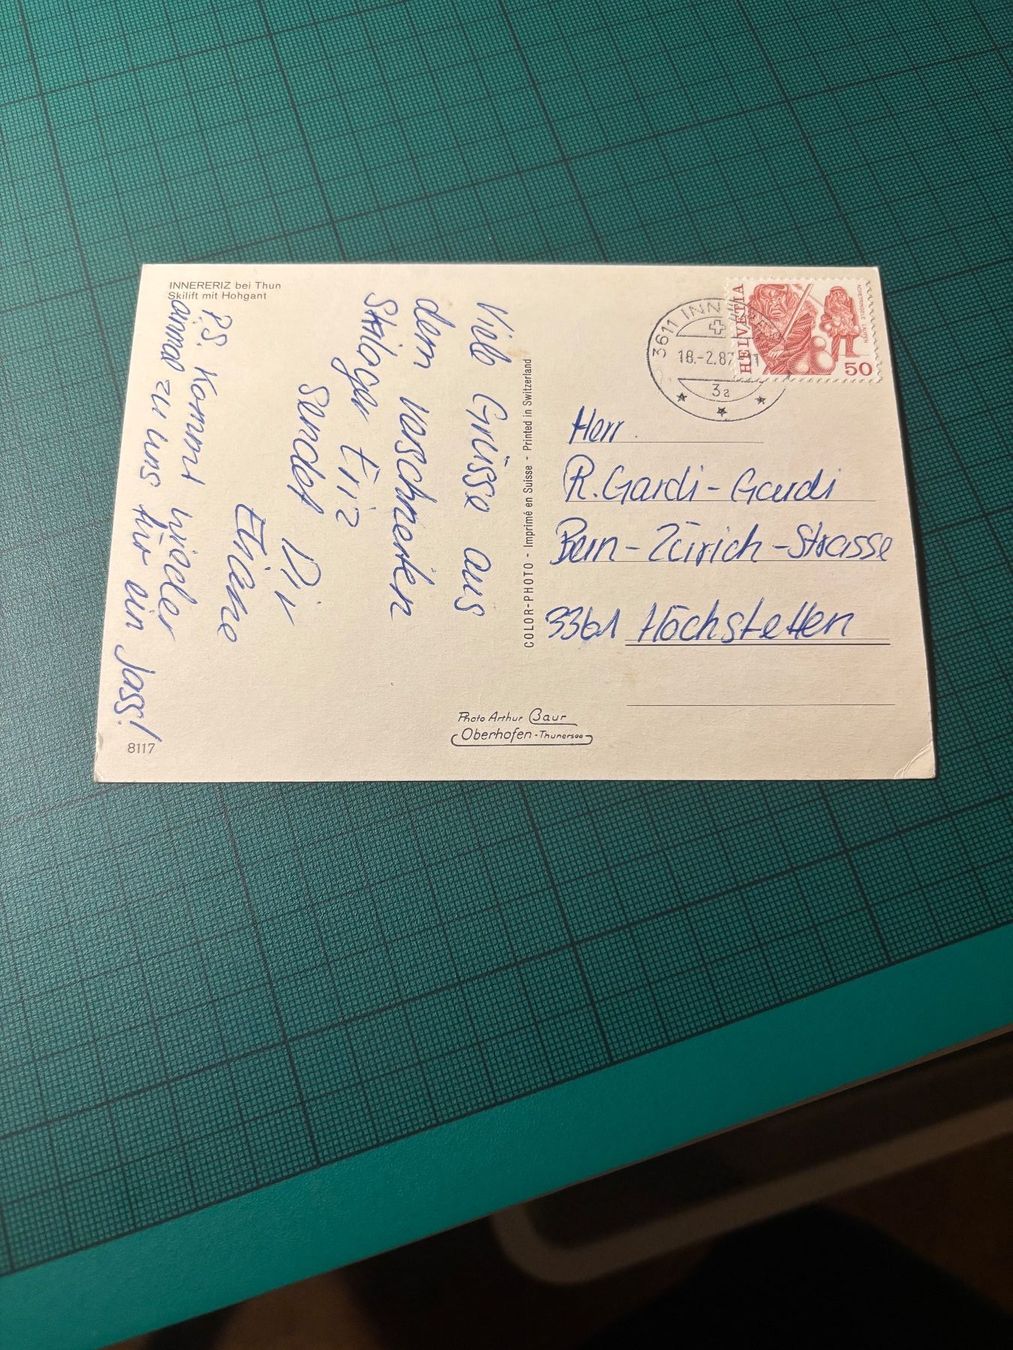 INNERERIZ bei Thun
Skilift mit Hohgant
Viele Grüsse aus
dem verschneiten
Skilager Eriz
sendet Dir
Eliane
P.S. Kommt wieder
einmal zu uns für ein Jass!
8117
COLOR-PHOTO - Imprimé en Suisse - Printed in Switzerland
Photo Arthur Baur
Oberhofen - Thunersee
3611 INN
18.-2.87
3a
HELVETIA
50
Herr
R. Gardi-Gardi
Bern-Zürich-Strasse
3361 Höchstetten